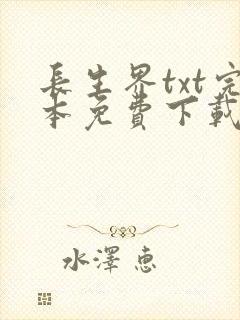 長生界txt完
本免費下載
水澤惠